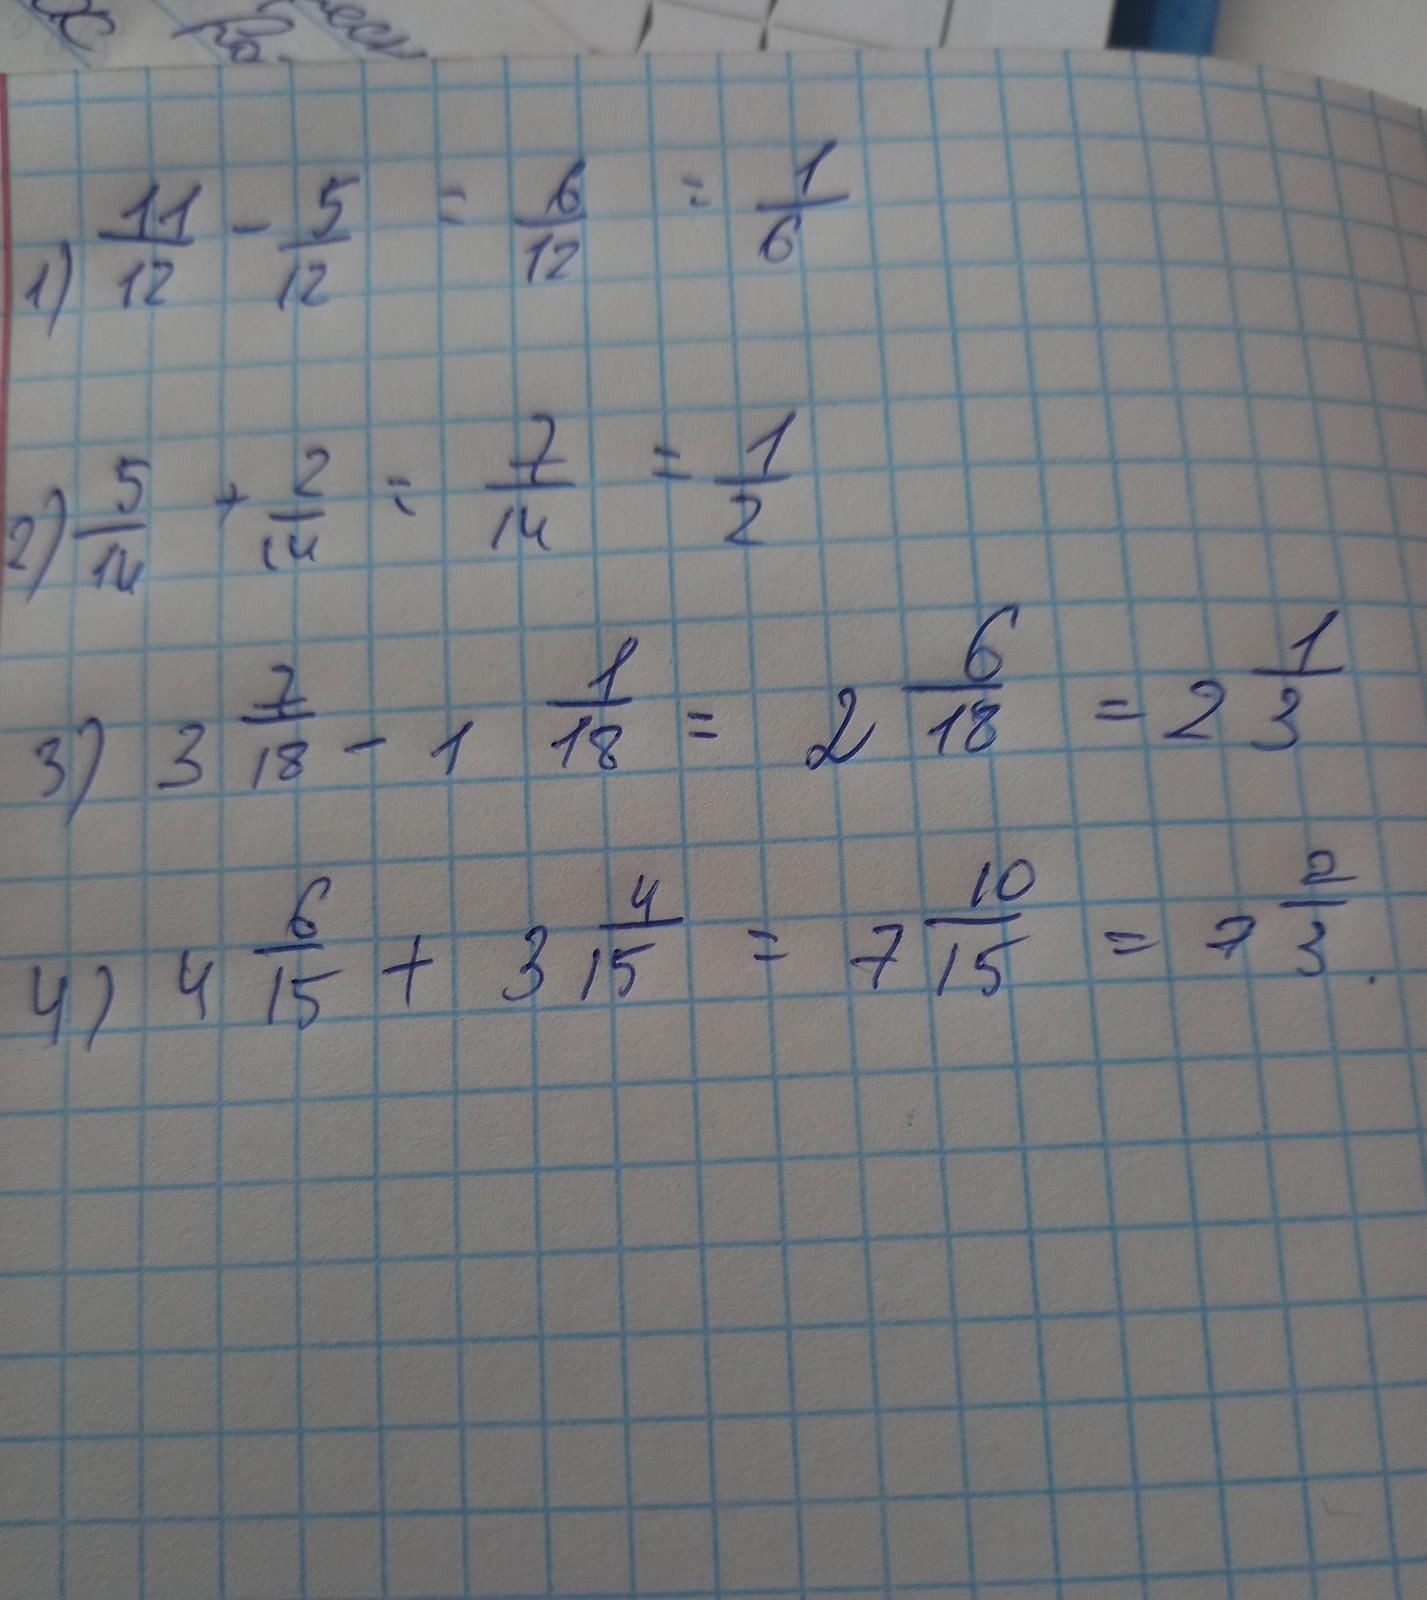 1) 11/12 - 5/12 = 6/12 = 1/6
2) 5/14 + 2/14 = 7/14 = 1/2
3) 3 7/18 - 1 1/18 = 2 6/18 = 2 1/3
4) 4 6/15 + 3 4/15 = 7 10/15 = 7 2/3.